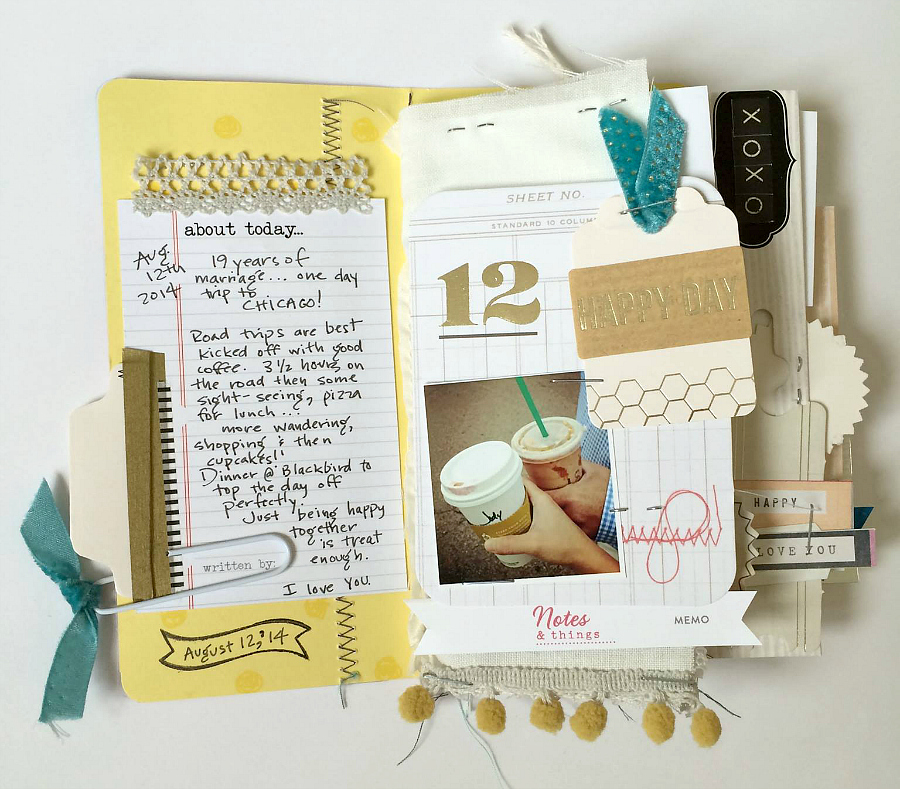 about today...
Aug.
12th
2014
19 years of
marriage... one day
trip to
CHICAGO!
Road trips are best
kicked off with good
coffee. 3 1/2 hours on
the road then some
sight-seeing, pizza
for lunch...
more wandering,
shopping & then
cupcakes!!
Dinner @ Blackbird to
top the day off
perfectly.
Just being happy
together
is treat
enough.
I love you.
written by:
August 12, '14
SHEET NO.
STANDARD 10 COLUM
12
HAPPY DAY
Notes
& things
MEMO
XOXO
HAPPY
LOVE YOU